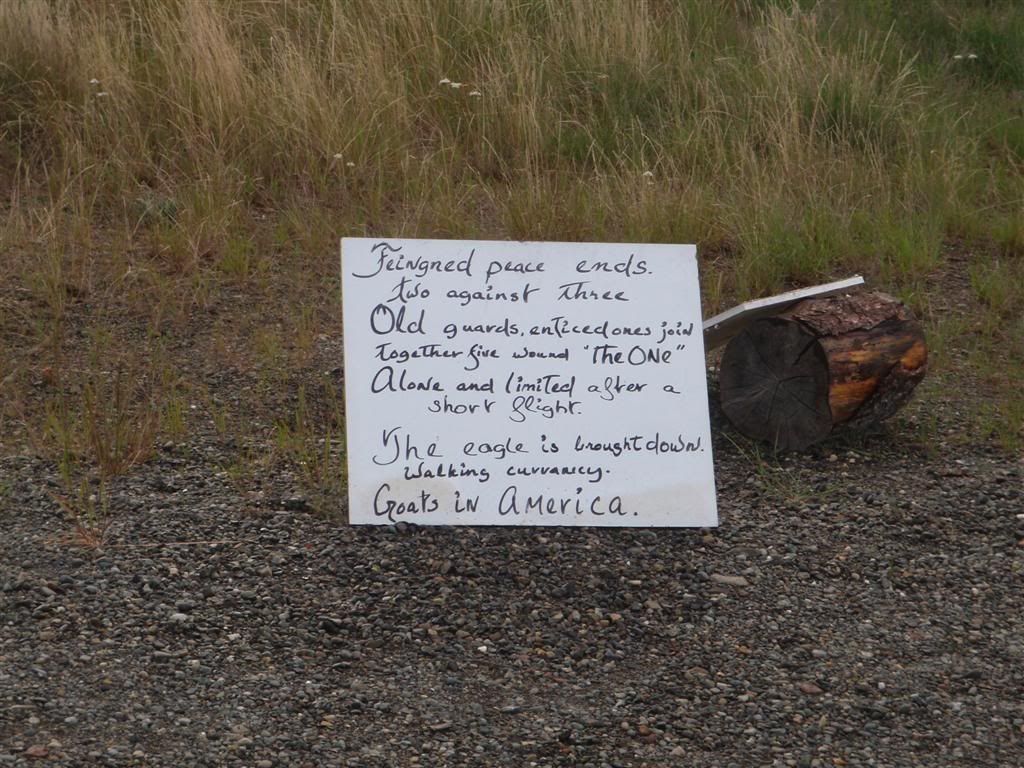 Feingned peace ends.
two against three
Old guards, enticed ones join
together five wound "The ONE"
Alone and limited after a
short flight.
The eagle is brought down.
Walking currancy.
Goats in America.